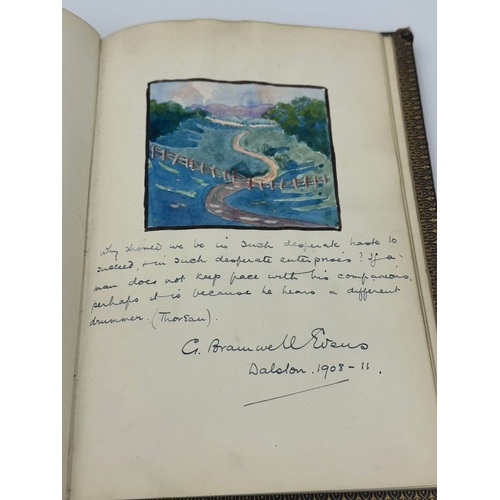 Why should we be in such desperate haste to
succeed, & in such desperate enterprises? If a
man does not keep pace with his companions,
perhaps it is because he hears a different
drummer. (Thoreau).
G. Bramwell Evens
Dalston. 1908-11.